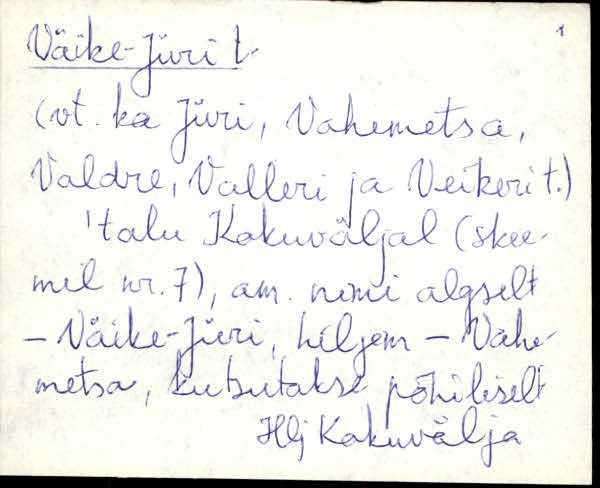 1
Väike-Jüri t.
(vt. ka Jüri, Vahemetsa,
Valdre, Valleri ja Veikeri t.)
'talu Kakuväljal (skee-
mil nr. 7), am. nimi algselt
– Väike-Jüri, hiljem – Vahe-
metsa, kutsutakse põhiliselt
Hlj Kakuvälja